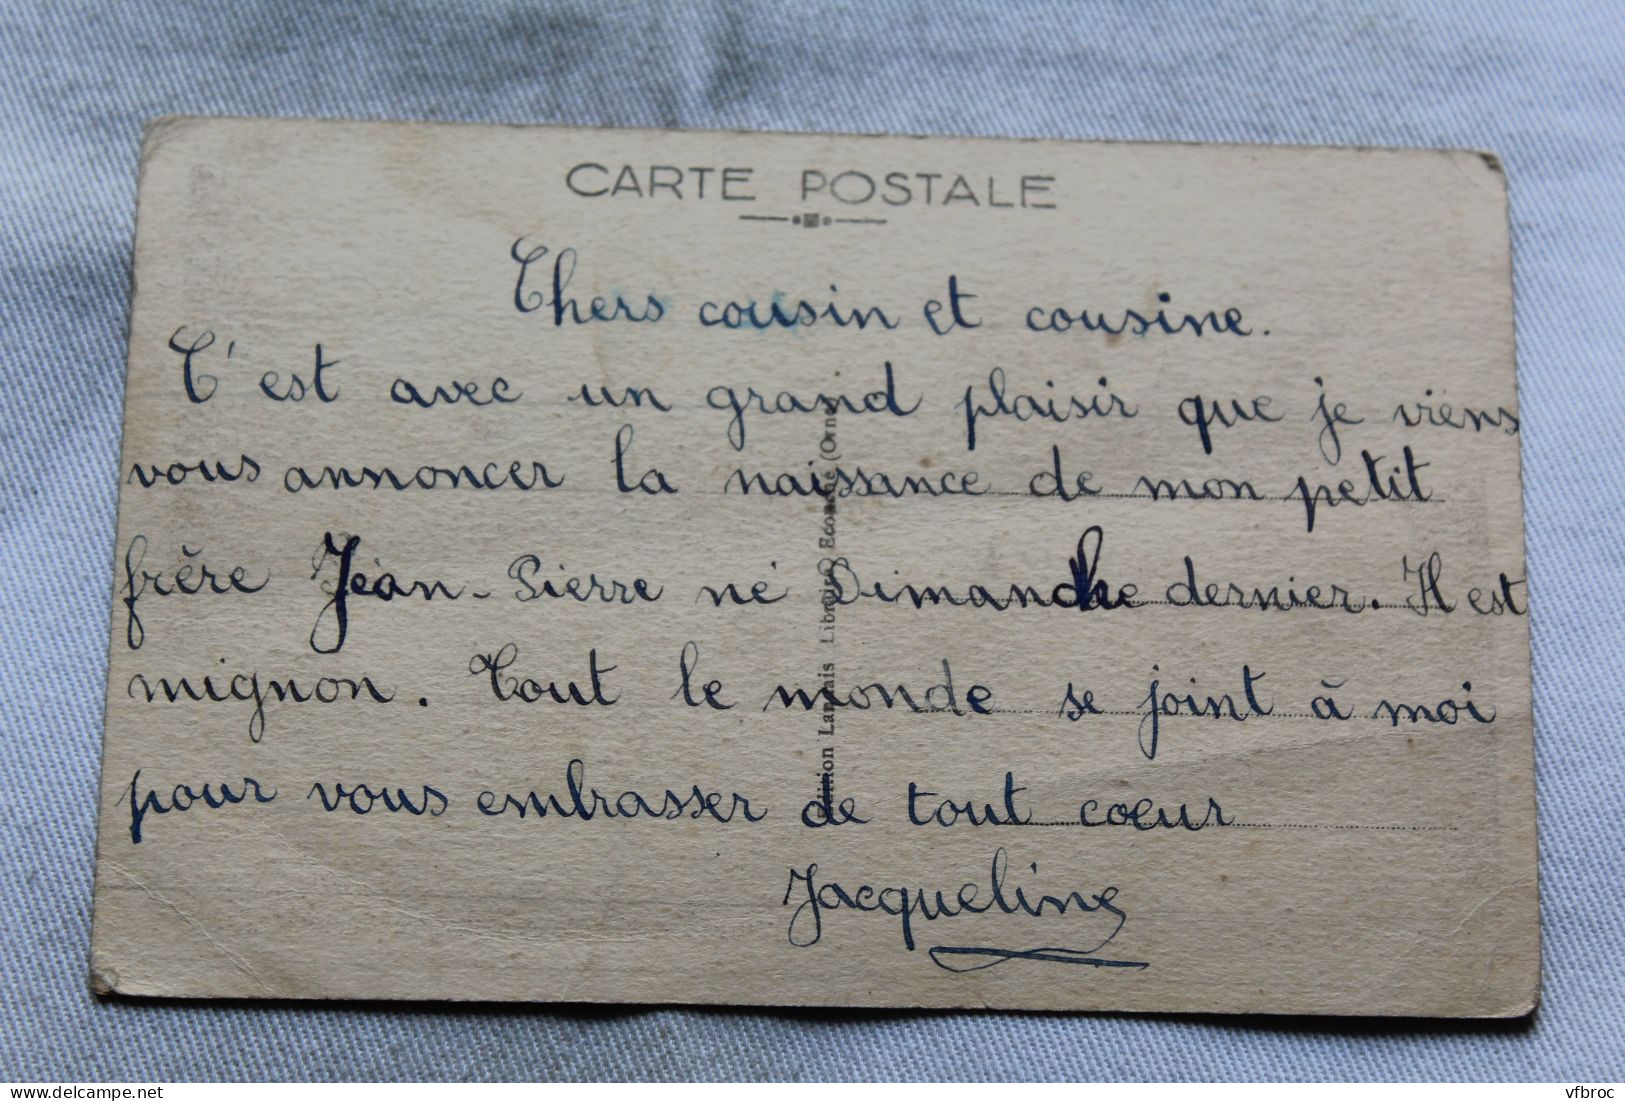 CARTE POSTALE
Chers cousin et cousine.
C'est avec un grand plaisir que je viens
vous annoncer la naissance de mon petit
frère Jean-Pierre né Dimanche dernier. Il est
mignon. Tout le monde se joint à moi
pour vous embrasser de tout coeur
Jacqueline
Librairie Economie (Orne
vfbroc